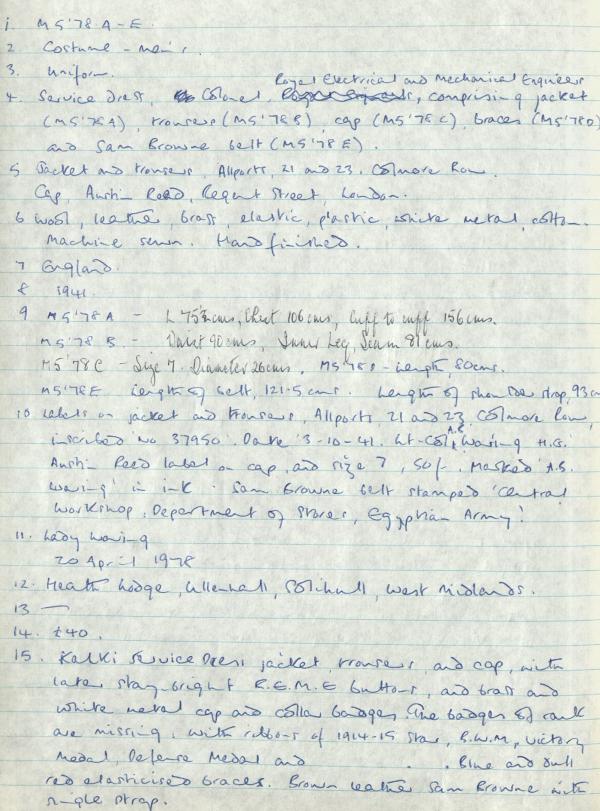 1 M5'78 A-E.
2 Costume - men's.
3. Uniform.
Royal Electrical and Mechanical Engineers
4. Service Dress, Colonel, comprising jacket
(M5'78A), trousers (M5'78B), cap (M5'78C), braces (M5'78D)
and Sam Browne belt (M5'78E).
5 Jacket and trousers, Allports, 21 and 23. Colmore Row.
Cap, Austin Reed, Regent Street, London.
6 Wool, leather, brass, elastic, plastic, white metal, cotton.
Machine sewn. Hand finished.
7 England.
8 1941.
9 M5'78A - L 75½cms, Chest 106cms, Cuff to cuff 156cms.
M5'78B - Waist 90cms, Inner Leg Seam 81cms.
M5'78C - Size 7. Diameter 26cms, M5'78D - Length, 80cms.
M5'78E Length of belt, 121.5cms. Length of shoulder strap, 93cm
10 Labels on jacket and trousers, Allports, 21 and 23 Colmore Row,
inscribed No 37950. Date '3-10-41. Lt-Col A.B. Waring H.G.
Austin Reed label on cap, and size 7, 50/-. Marked 'A.B.
Waring' in ink. Sam Browne belt stamped 'Central
Workshop, Department of Stores, Egyptian Army'.
11. Lady Waring
20 April 1978
12. Heath Lodge, Ullenhall, Solihull, West Midlands.
13 —
14. £40.
15. Kakki Service Dress jacket, trousers, and cap, with
later stay-bright R.E.M.E buttons, and brass and
white metal cap and collar badges. The badges of rank
are missing. With ribbons of 1914-15 Star, B.W.M, Victory
Medal, Defense Medal and . . Blue and dull
red elasticised braces. Brown leather Sam Browne with
single strap.